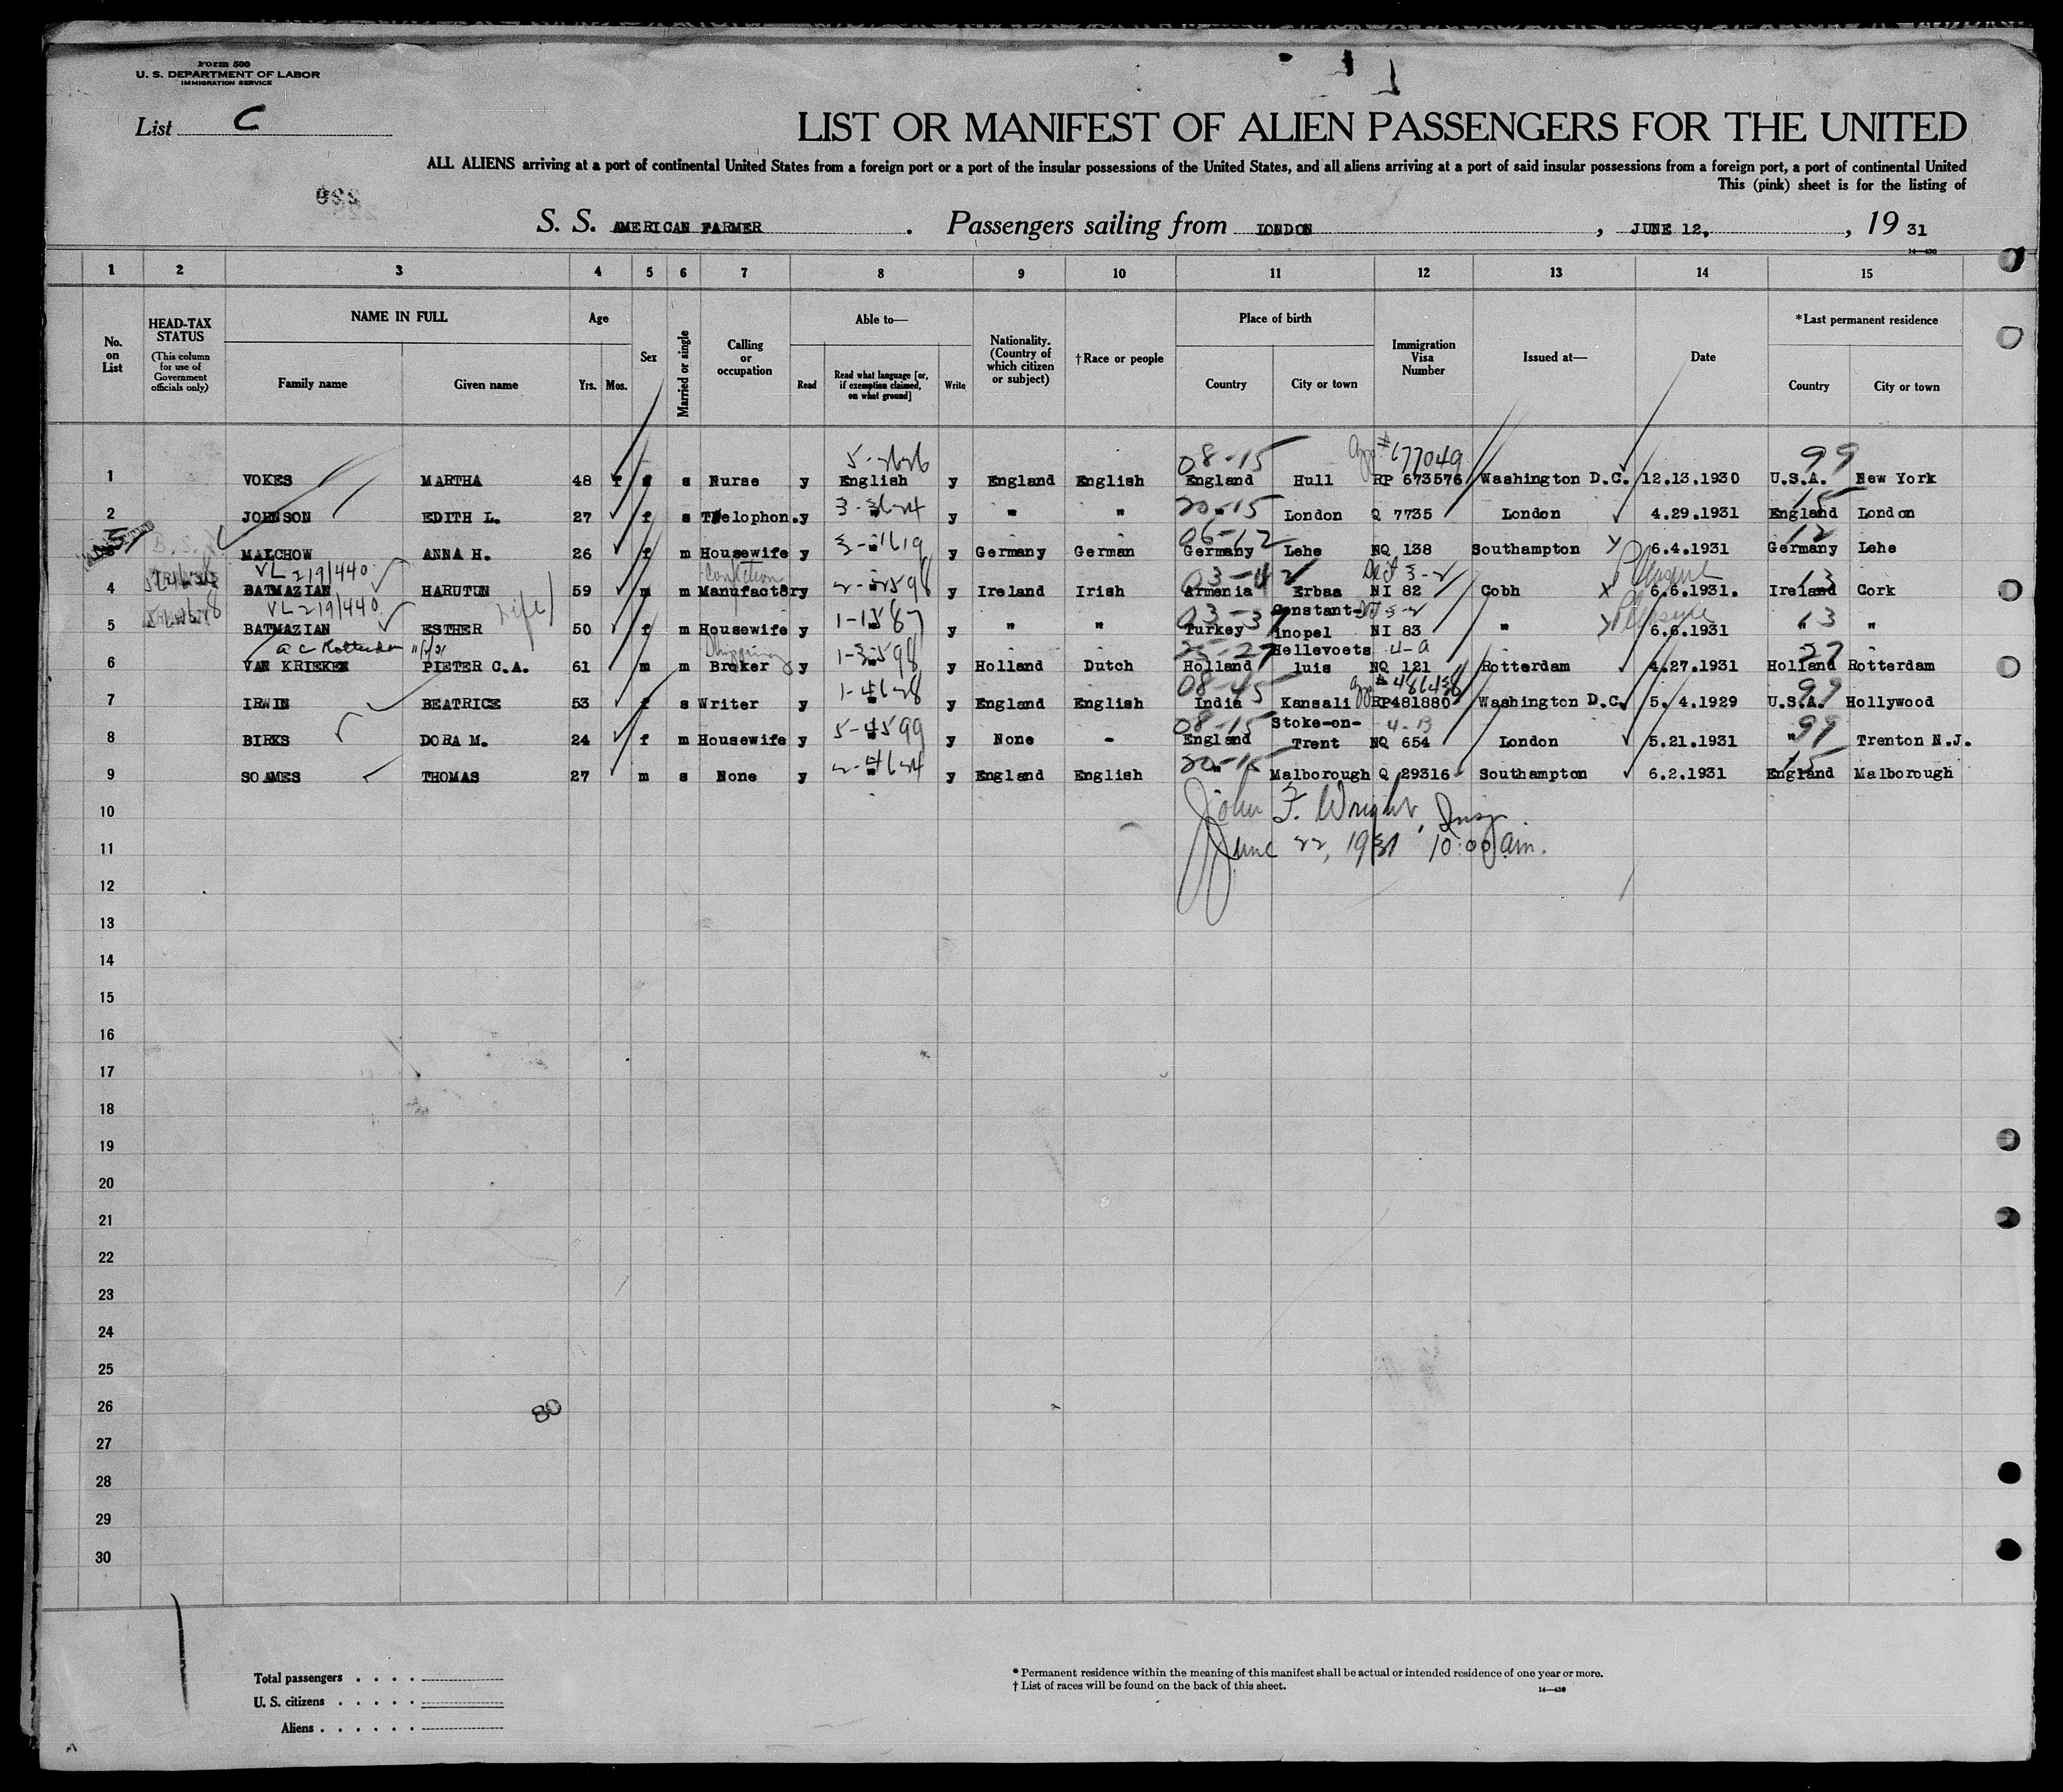 Form 500
U. S. DEPARTMENT OF LABOR
IMMIGRATION SERVICE
List C
LIST OR MANIFEST OF ALIEN PASSENGERS FOR THE UNITED
ALL ALIENS arriving at a port of continental United States from a foreign port or a port of the insular possessions of the United States, and all aliens arriving at a port of said insular possessions from a foreign port, a port of continental United
This (pink) sheet is for the listing of
S. S. AMERICAN FARMER. Passengers sailing from LONDON, JUNE 12, 1931
14—430
1 2 3 4 5 6 7 8 9 10 11 12 13 14 15
No. on List
HEAD-TAX STATUS (This column for use of Government officials only)
NAME IN FULL
Family name Given name
Age
Yrs. Mos.
Sex
Married or single
Calling or occupation
Able to—
Read Read what language [or, if exemption claimed, on what ground] Write
Nationality. (Country of which citizen or subject)
†Race or people
Place of birth
Country City or town
Immigration Visa Number
Issued at—
Date
*Last permanent residence
Country City or town
5-2626 08-15 App # 677049 99
1 VOKES MARTHA 48 f s Nurse y English y England English England Hull RP 673576 Washington D.C. 12.13.1930 U.S.A. New York
20-15 15
2 JOHNSON EDITH L. 27 f s Telephon. y " y " " " London Q 7735 London 4.29.1931 England London
06-12 12
3 MALCHOW ANNA H. 26 f m Housewife y " y Germany German Germany Lehe NQ 138 Southampton 6.4.1931 Germany Lehe
VL 219/440 Confection 2-2598 Pleasure 13
4 BATMAZIAN HARUTUN 59 m m Manufactory y " y Ireland Irish Armenia Erbaa NI 82 Cobh 6.6.1931. Ireland Cork
VL 219/440 Wife 1-1587 03-37 Constant- Pleasure 13
5 BATMAZIAN ESTHER 50 f m Housewife y " y " " Turkey inopel NI 83 " 6.6.1931 " "
a c Rotterdam Shipping 1-3598 25-27 Hellevoets 4-a 27
6 VAN KRIEKEN PIETER C.A. 61 m m Broker y " y Holland Dutch Holland luis NQ 121 Rotterdam 4.27.1931 Holland Rotterdam
1-4628 08-45 99
7 IRWIN BEATRICE 53 f s Writer y " y England English India Kansali RP481880 Washington D.C. 5. 4.1929 U.S.A. Hollywood
5-4599 08-15 Stoke-on- 4-B 99
8 BIRKS DORA M. 24 f m Housewife y " y None - England Trent NQ 654 London 5.21.1931 " Trenton N.J.
2-4624 20-15 15
9 SOAMES THOMAS 27 m s None y " y England English " Malborough Q 29316 Southampton 6.2.1931 England Malborough
10 John F. Wright, Insp.
11 June 22, 1931 10:00 am.
12
13
14
15
16
17
18
19
20
21
22
23
24
25
26 80
27
28
29
30
Total passengers . . . .
U. S. citizens . . . . .
Aliens . . . . . .
* Permanent residence within the meaning of this manifest shall be actual or intended residence of one year or more.
† List of races will be found on the back of this sheet.
14—430